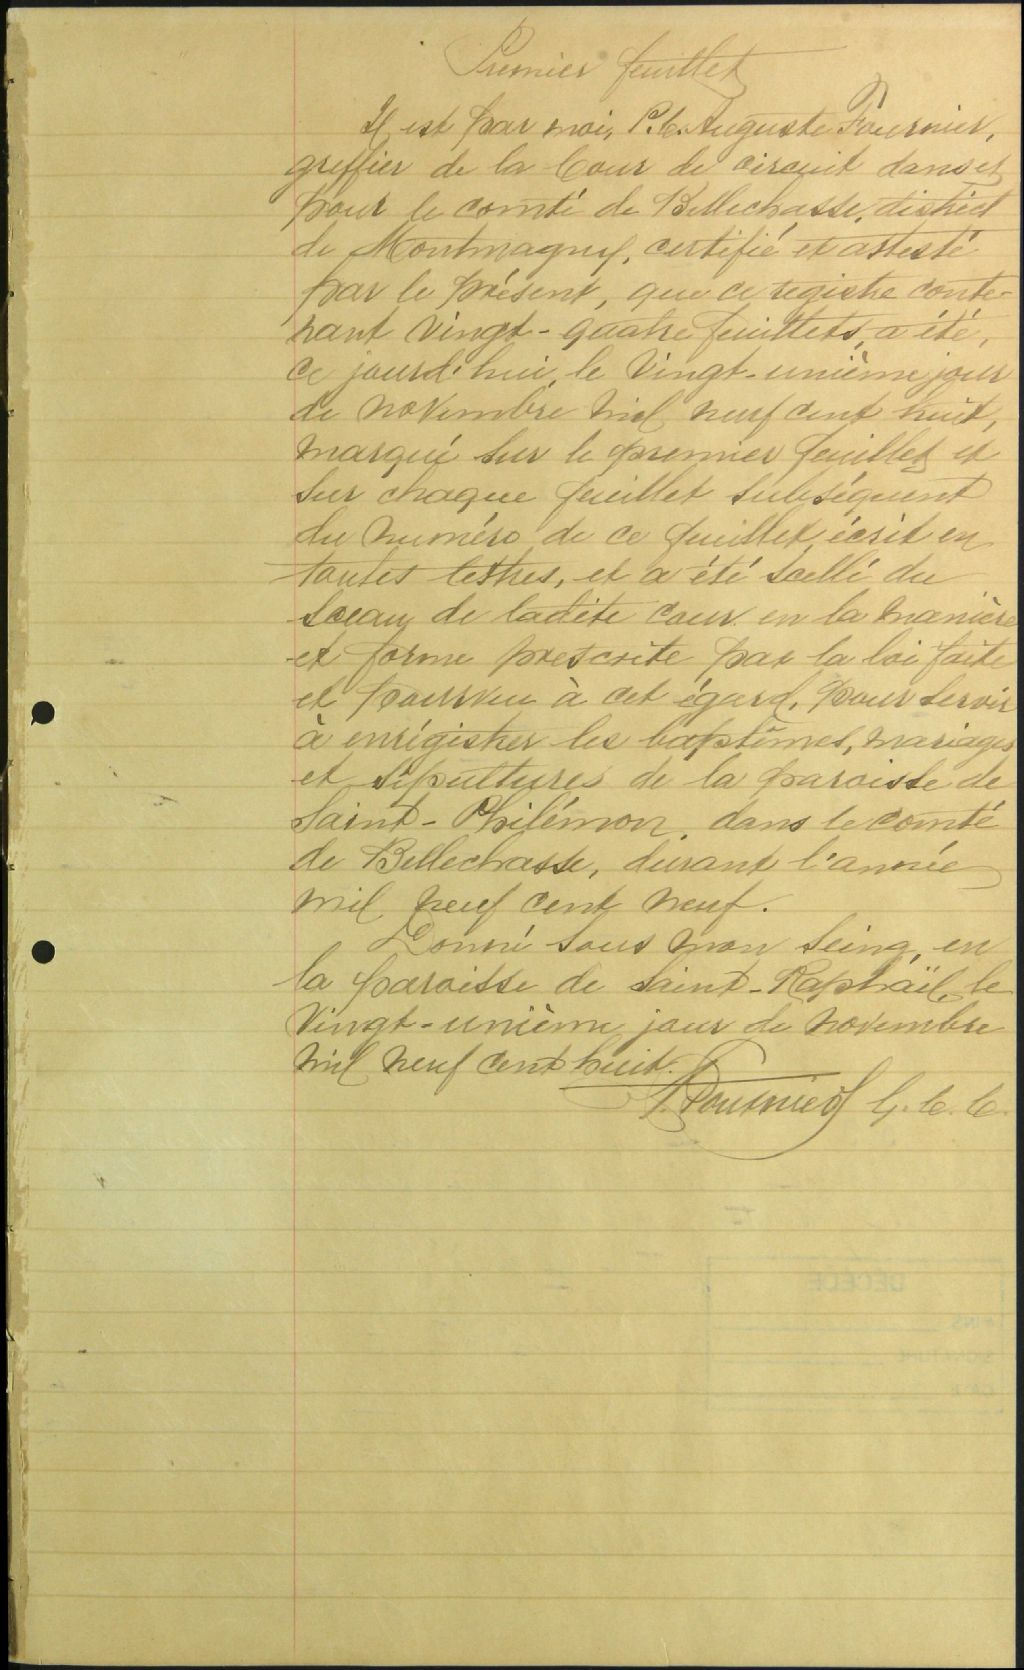 Premier feuillet
Il est par moi, P. C. Auguste Fournier,
greffier de la Cour de circuit dans et
pour le comté de Bellechasse, district
de Montmagny, certifié et attesté
par le présent, que ce registre conte-
nant vingt-quatre feuillets, a été,
ce jourd'hui, le vingt-unième jour
de novembre mil neuf cent huit,
marqué sur le premier feuillet et
sur chaque feuillet subséquent
du numéro de ce feuillet écrit en
toutes lettres, et a été scellé du
sceau de ladite cour en la manière
et forme prescrite par la loi faite
et pourvue à cet égard, pour servir
à enrégistrer les baptêmes, mariages
et sépultures de la paroisse de
Saint-Philémon, dans le comté
de Bellechasse, durant l'année
mil neuf cent neuf.
Donné sous mon seing, en
la paroisse de Saint-Raphaël, le
vingt-unième jour de novembre
mil neuf cent huit.
Fournier G. C. C.